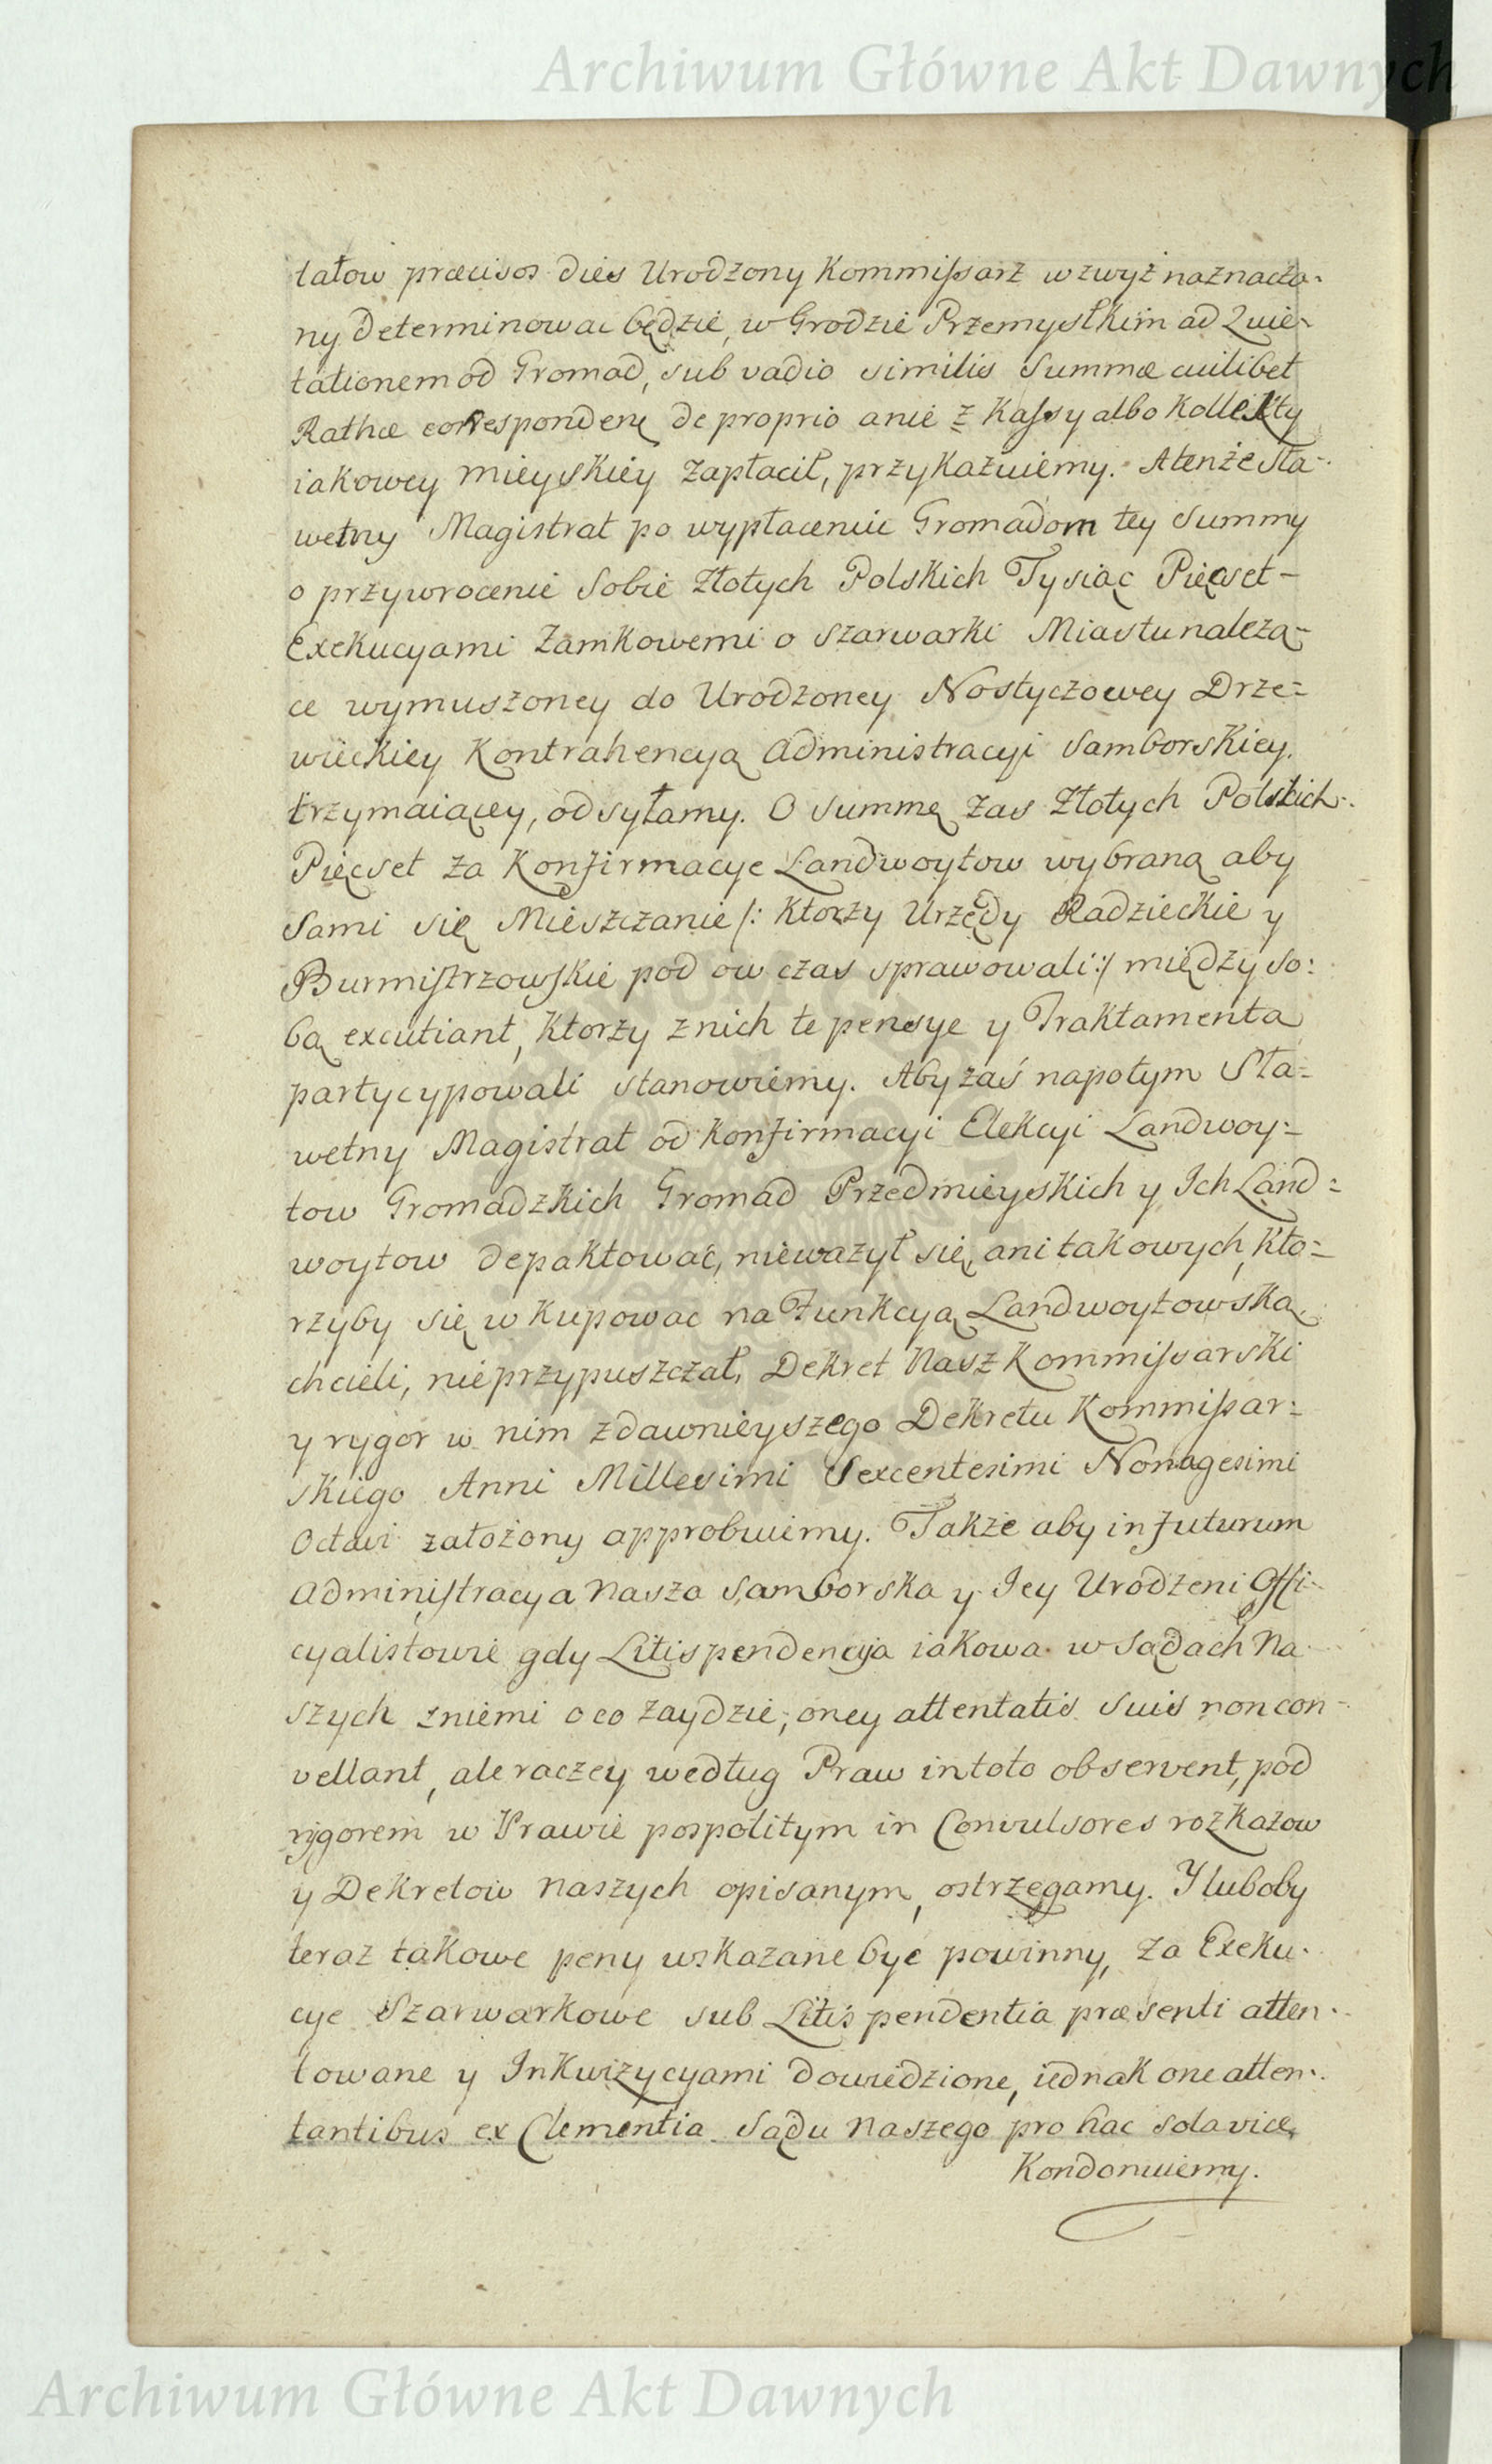 Archiwum Główne Akt Dawnych
tatow præcisos dies Urodzony Kommissarz wzwyż naznaczo-
ny determinowac będzie, w Grodzie Przemyskim ad Quie-
tationem od Gromad, sub vadio similis Summæ cuilibet
Rathæ corresponden de proprio anie z Kassy albo Kollekty
iakowey mieyskiey zapłacił, przykazuiemy. Atenże Sła-
wetny Magistrat po wypłaceniu Gromadom tey Summy
o przywrocenie Sobie Złotych Polskich Tysiąc Pięcset -
Exekucyami Zamkowemi o Szarwarki Miastu należą-
ce wymuszoney do Urodzoney Nostyczowey Drze-
wieckiey Kontrahencyą Administracyi Samborskiey
trzymaiącey, odsyłamy. O Summę zas Złotych Polskich
Pięcset za Konfirmacye Landwoytow wybraną aby
Sami się Mieszczanie /: Ktorzy Urzędy Radzieckie y
Burmistrzowskie pod ow czas sprawowali :/ między so:
bą excutiant, Ktorzy znich te pensye y Traktamenta
partycypowali stanowiemy. Aby zaś napotym Sła-
wetny Magistrat od Konfirmacyi Elekcyi Landwoy-
tow Gromadzkich Gromad Przedmieyskich y Ich Land-
woytow depaktować, nieważył się, ani takowych, kto-
rzyby się wkupować na Funkcyą Landwoytowską
chcieli, nieprzypuszczał, Dekret Nasz Kommissarski
y rygor w nim zdawnieyszego Dekretu Kommissar-
skiego Anni Millesimi Sexcentesimi Nonagesimi
Octavi założony approbuiemy. Także aby in futurum
Administracya Nasza Samborska y Jey Urodzeni Offi-
cyalistowie gdy Litispendencyja iakowa w Sądach Na-
szych zniemi oco zaydzie, oney attentatis suis non con-
vellant, ale raczey według Praw in toto observent, pod
rygorem w Prawie pospolitym in Convulsores rozkazow
y Dekretow Naszych opisanym, ostrzegamy. Y luboby
teraz takowe peny wskazane być powinny, za Exeku-
cye Szarwarkowe sub Litis pendentia præsenti atten-
towane y Inkwizycyami dowiedzione, iednak one atten-
tantibus ex Clementia Sądu Naszego pro hac sola vice,
Kondonuiemy.
Archiwum Główne Akt Dawnych